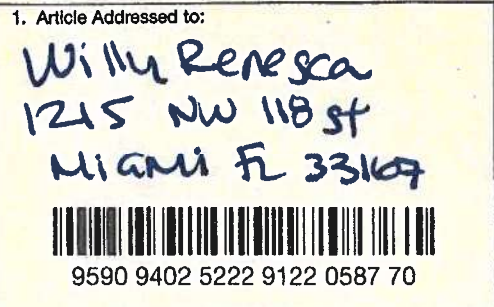 1. Article Addressed to:
Willy Renesca
1215 NW 118 st
Miami FL 33167
9590 9402 5222 9122 0587 70